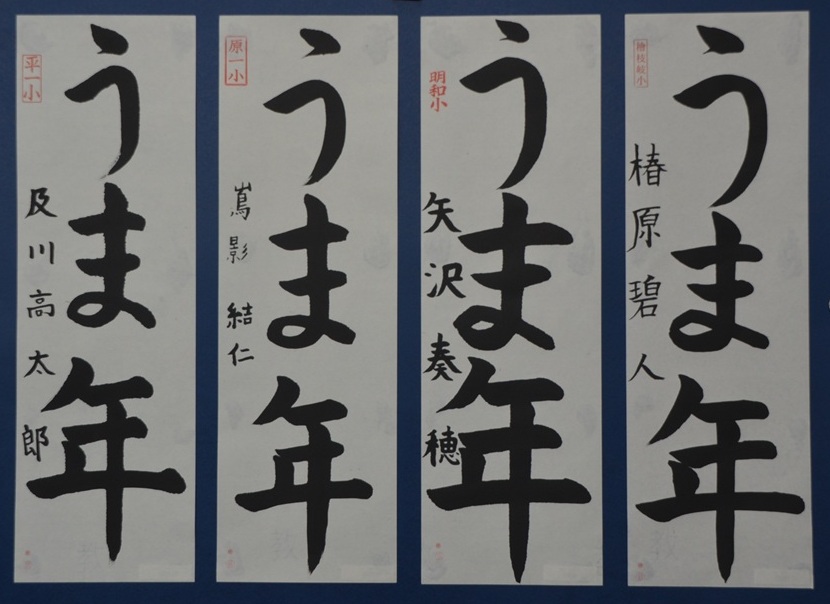 うま年
檜枝岐小
椿原碧人
うま年
明和小
矢沢奏穂
うま年
原一小
嶌影結仁
うま年
平一小
及川高太郎